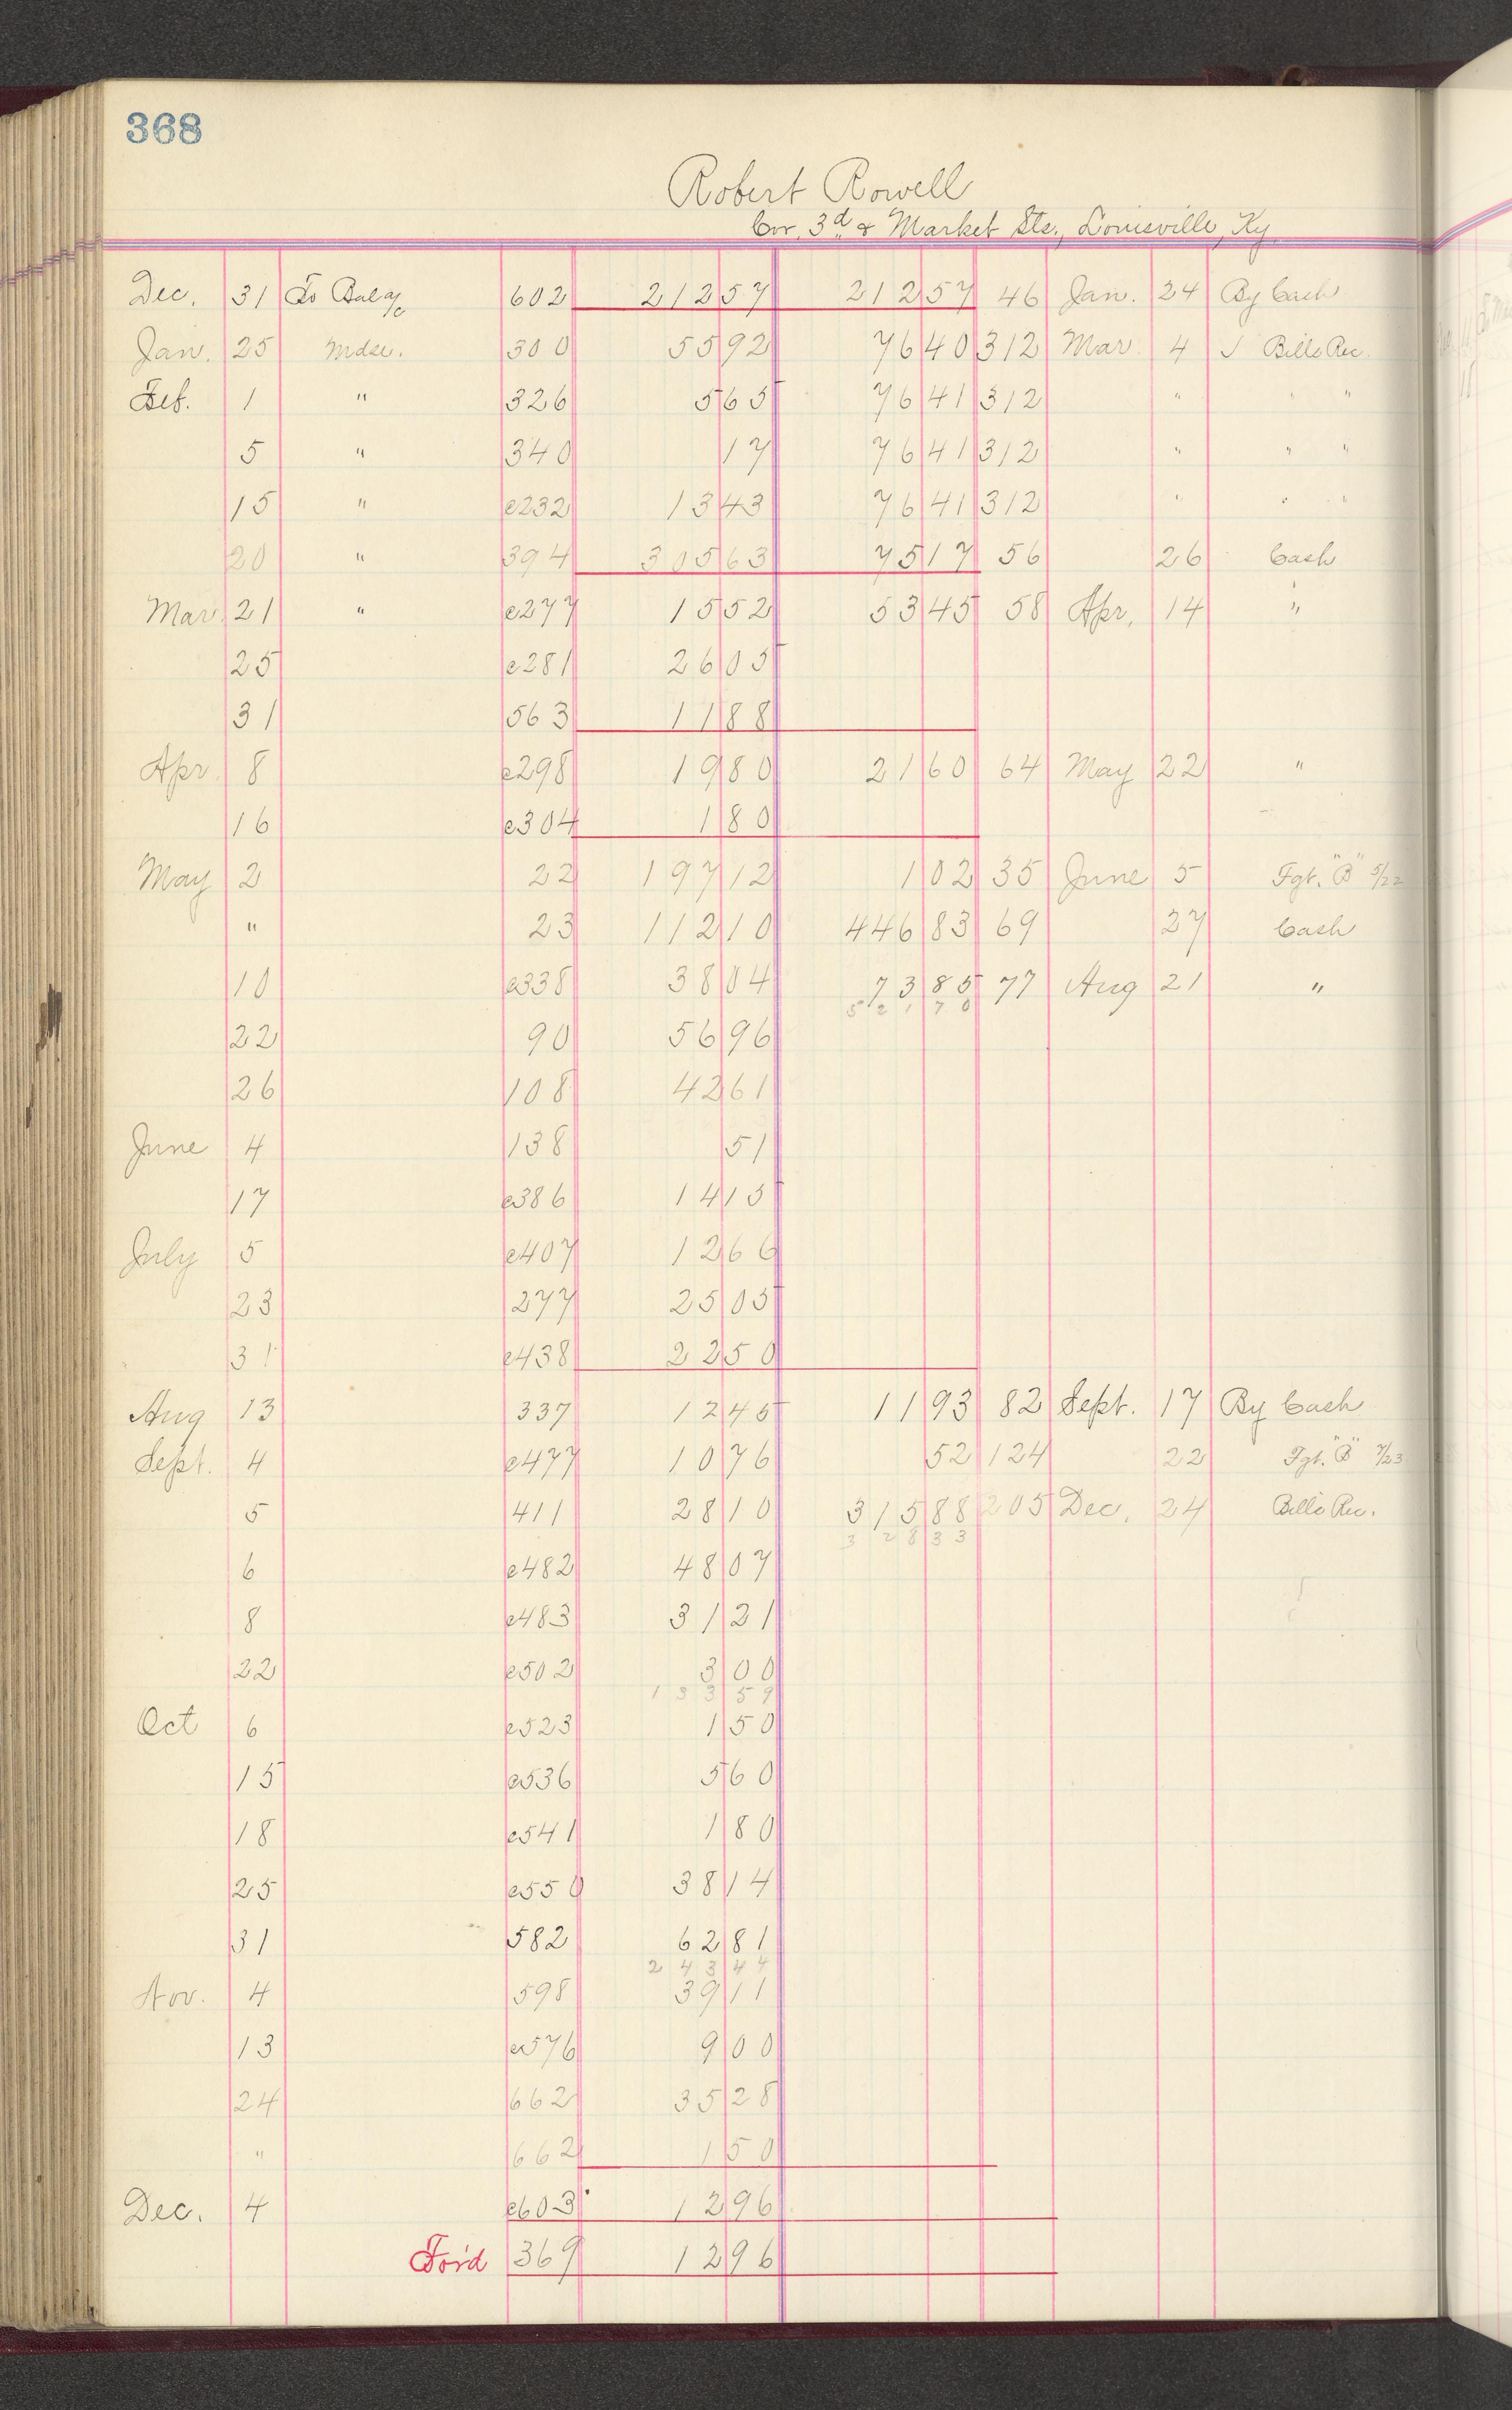 368
Robert Rowell
Cor. 3d & Market Sts., Louisville, Ky.
Dec. 31 To Bal a/c 602 212 57 212 57 46 Jan. 24 By Cash
Jan. 25 Mdse. 300 55 92 76 40 312 Mar 4 √ Bills Rec.
Feb. 1 " 326 5 65 76 41 312 " " "
5 " 340 17 76 41 312 " " "
15 " c232 13 43 76 41 312 " " "
20 " 394 305 63 75 17 56 26 Cash
Mar. 21 " c277 15 52 53 45 58 Apr. 14 "
25 c281 26 05
31 563 11 88
Apr. 8 c298 19 80 21 60 64 May 22 "
16 c304 1 80
May 2 22 197 12 1 02 35 June 5 Fgt. "B" 5/22
" 23 112 10 446 83 69 27 Cash
10 c338 38 04 73 85 77 Aug 21 "
521 70
22 90 56 96
26 108 42 61
June 4 138 51
17 c386 14 15
July 5 c407 12 66
23 277 25 05
31 c438 22 50
Aug 13 337 12 45 11 93 82 Sept. 17 By Cash
Sept. 4 c477 10 76 52 124 22 Fgt. "B" 7/23
5 411 28 10 315 88 205 Dec. 24 Bills Rec.
328 33
6 c482 48 07
8 c483 31 21
22 c502 3 00
133 59
Oct 6 c523 1 50
15 c536 5 60
18 c541 1 80
25 c550 38 14
31 582 62 81
243 44
Nov. 4 598 39 11
13 c576 9 00
24 662 35 28
" 662 1 50
Dec. 4 c603 12 96
For'd 369 12 96